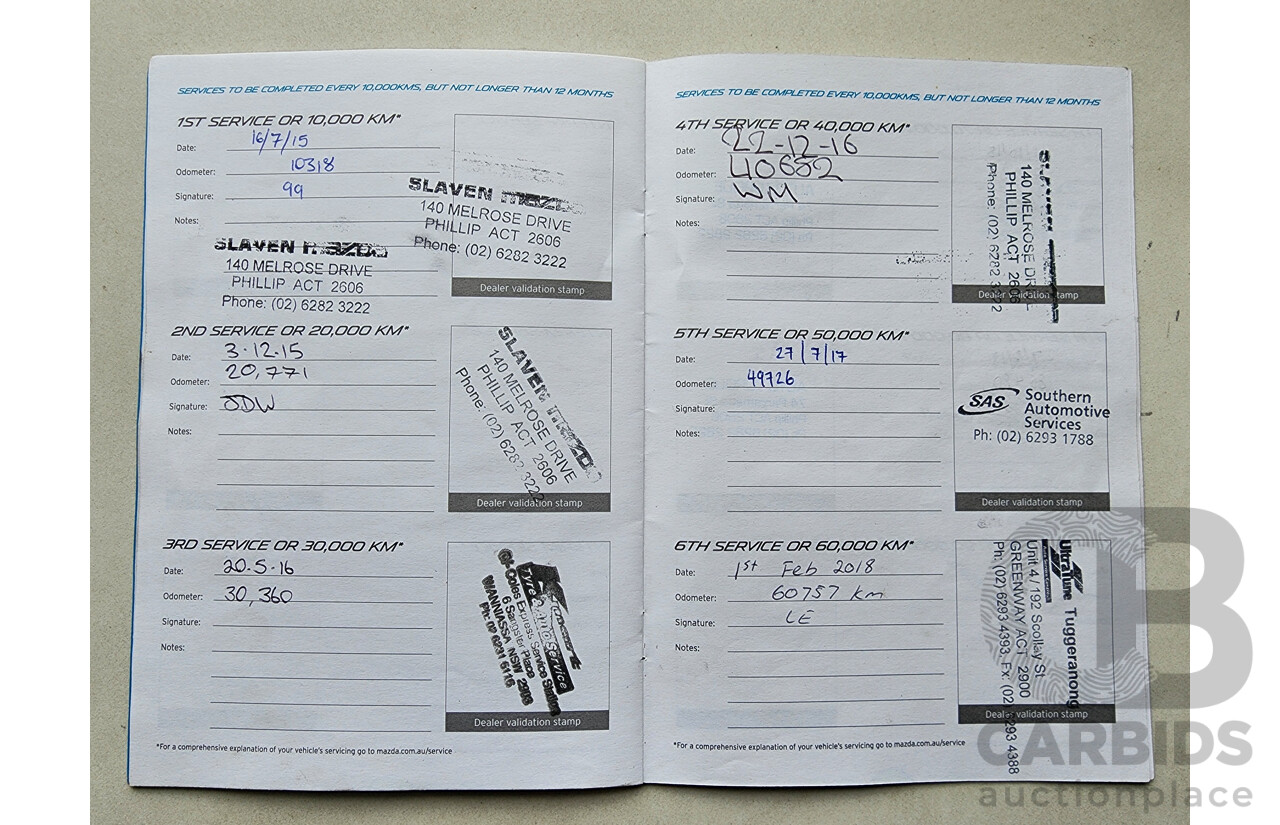 SERVICES TO BE COMPLETED EVERY 10,000KMS, BUT NOT LONGER THAN 12 MONTHS
1ST SERVICE OR 10,000 KM*
Date: 16/7/15
Odometer: 10318
Signature: 99
Notes:
SLAVEN MAZDA
140 MELROSE DRIVE
PHILLIP ACT 2606
Phone: (02) 6282 3222
SLAVEN MAZDA
140 MELROSE DRIVE
PHILLIP ACT 2606
Phone: (02) 6282 3222
Dealer validation stamp
2ND SERVICE OR 20,000 KM*
Date: 3.12.15
Odometer: 20,771
Signature: JDW
Notes:
SLAVEN MAZDA
140 MELROSE DRIVE
PHILLIP ACT 2606
Phone: (02) 6282 3222
Dealer validation stamp
3RD SERVICE OR 30,000 KM*
Date: 20.5.16
Odometer: 30,360
Signature:
Notes:
Tyre & Auto Service
@ Coles Express Service Station
6 Sangster Place
WANNIASSA NSW 2903
Ph: 02 6231 6116
Dealer validation stamp
*For a comprehensive explanation of your vehicle's servicing go to mazda.com.au/service
SERVICES TO BE COMPLETED EVERY 10,000KMS, BUT NOT LONGER THAN 12 MONTHS
4TH SERVICE OR 40,000 KM*
Date: 22-12-16
Odometer: 40652
Signature: WM
Notes:
140 MELROSE DRIVE
PHILLIP ACT 2606
Phone: (02) 6282 3222
Dealer validation stamp
5TH SERVICE OR 50,000 KM*
Date: 27/7/17
Odometer: 49726
Signature:
Notes:
SAS Southern
Automotive
Services
Ph: (02) 6293 1788
Dealer validation stamp
6TH SERVICE OR 60,000 KM*
Date: 1st Feb 2018
Odometer: 60757 km
Signature: LE
Notes:
UltraTune Tuggeranong
Unit 4 / 192 Scollay St
GREENWAY ACT 2900
Ph: (02) 6293 4393 Fx: (02) 6293 4388
Dealer validation stamp
*For a comprehensive explanation of your vehicle's servicing go to mazda.com.au/service
CARBIDS
auctionplace